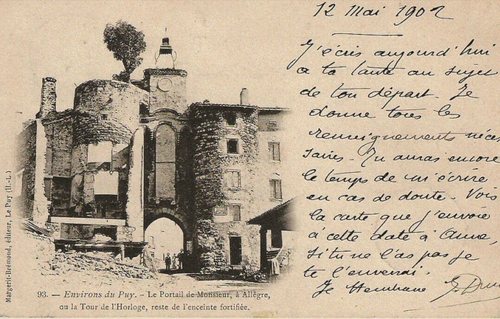 12 Mai 1902
J'écris aujourd'hui
à ta tante au sujet
de ton départ. Je
donne tous les
renseignements néces
saires. Tu auras encore
le temps de m'écrire
en cas de doute. Vois
la carte que j'envoie
à cette date à
si tu ne l'as pas je
te l'enverrai.
Je
93. — Environs du Puy. — Le Portail de Monsieur, à Allègre,
ou la Tour de l'Horloge, reste de l'enceinte fortifiée.
Margerit-Brémond, éditeur, Le Puy (H.-L.)